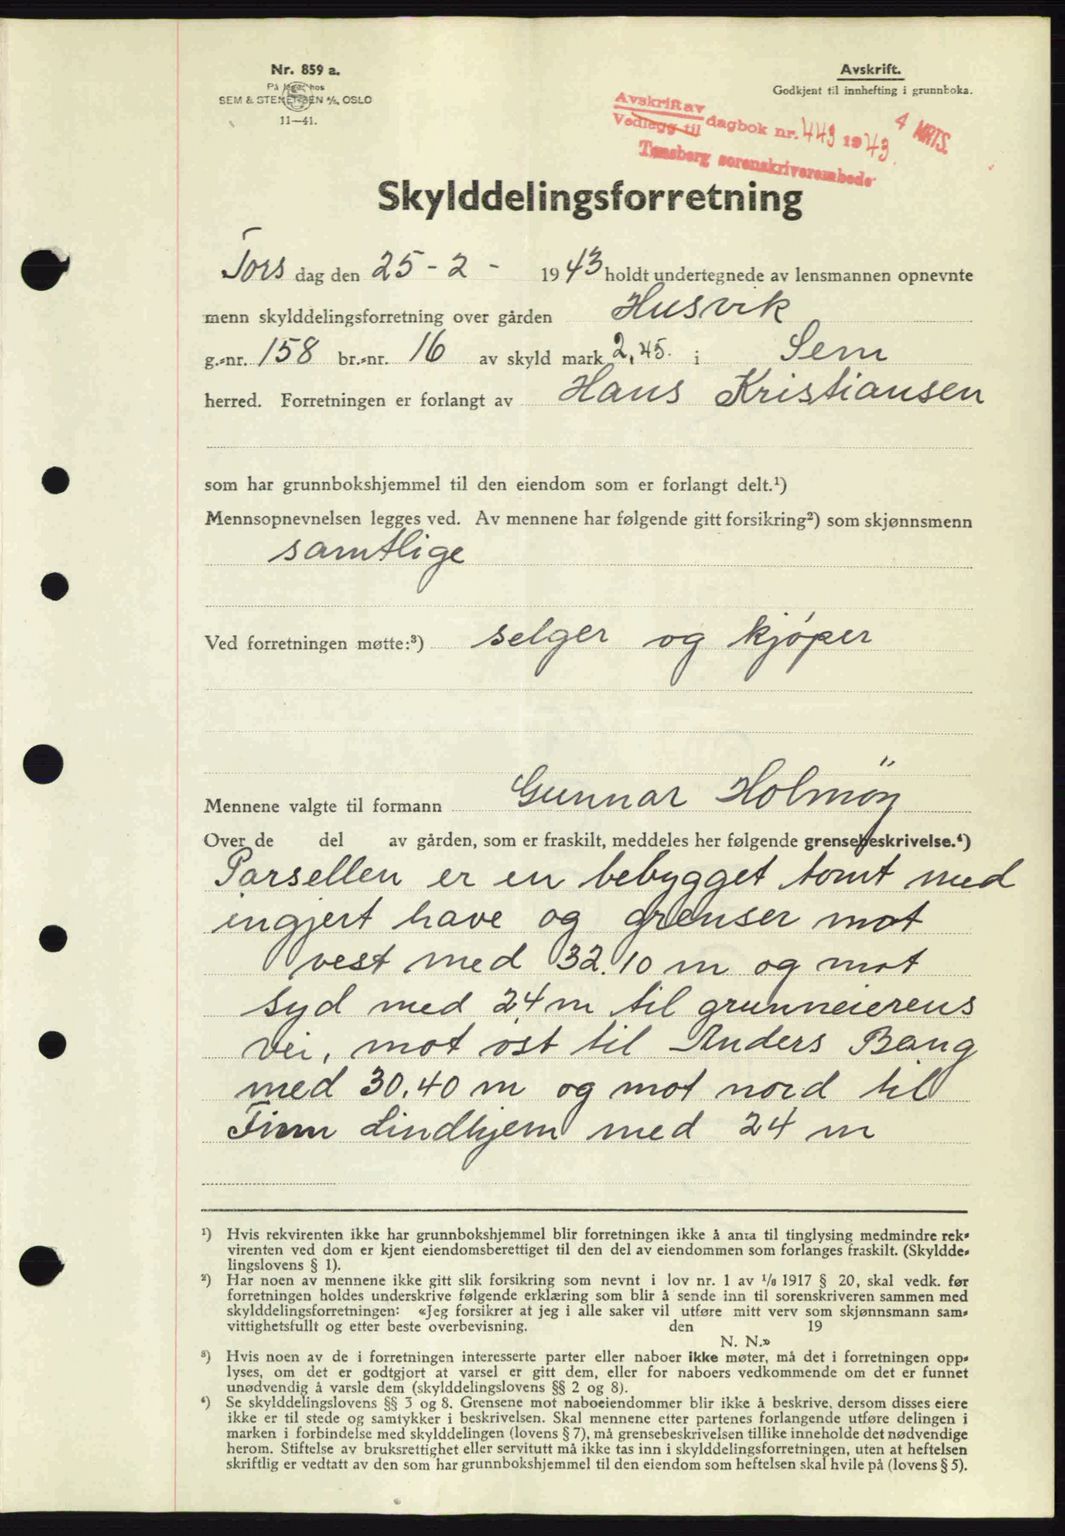 Nr. 859 a.
På lager hos
SEM & STENERSEN A/S, OSLO
11—41.
Avskrift.
Godkjent til innhefting i grunnboka.
Avskrift av
Vedlegg til dagbok nr. 443 1943 4 MRTS.
Tønsberg sorenskriverembede
Skylddelingsforretning
Tors dag den 25 - 2 - 1943 holdt undertegnede av lensmannen opnevnte
menn skylddelingsforretning over gården Husvik
g.-nr. 158 br.-nr. 16 av skyld mark 2,45. i Sem
herred. Forretningen er forlangt av Hans Kristiansen
som har grunnbokshjemmel til den eiendom som er forlangt delt.¹)
Mennsopnevnelsen legges ved. Av mennene har følgende gitt forsikring²) som skjønnsmenn
samtlige
Ved forretningen møtte:³) selger og kjøper
Mennene valgte til formann Gunnar Holmøy
Over de del av gården, som er fraskilt, meddeles her følgende grensebeskrivelse.⁴)
Parsellen er en bebygget tomt med
ingjert have og grenser mot
vest med 32.10 m og mot
syd med 24 m til grunneierens
vei, mot øst til Anders Bang
med 30.40 m og mot nord til
Finn Lindhjem med 24 m
¹) Hvis rekvirenten ikke har grunnbokshjemmel blir forretningen ikke å anta til tinglysing medmindre rek-
virenten ved dom er kjent eiendomsberettiget til den del av eiendommen som forlanges fraskilt. (Skyldde-
lingslovens § 1).
²) Har noen av mennene ikke gitt slik forsikring som nevnt i lov nr. 1 av 1/6 1917 § 20, skal vedk. før
forretningen holdes underskrive følgende erklæring som blir å sende inn til sorenskriveren sammen med
skylddelingsforretningen: «Jeg forsikrer at jeg i alle saker vil utføre mitt verv som skjønnsmann sam-
vittighetsfullt og etter beste overbevisning. den 19
N. N.»
³) Hvis noen av de i forretningen interesserte parter eller naboer ikke møter, må det i forretningen opp-
lyses, om det er godtgjort at varsel er gitt dem, eller for naboers vedkommende om det er funnet
unødvendig å varsle dem (skylddelingslovens §§ 2 og 8).
⁴) Se skylddelingslovens §§ 3 og 8. Grensene mot naboeiendommer blir ikke å beskrive, dersom disses eiere
ikke er til stede og samtykker i beskrivelsen. Skal mennene etter partenes forlangende utføre delingen i
marken i forbindelse med skylddelingen (lovens § 7), må grensebeskrivelsen tillike inneholde det nødvendige
herom. Stiftelse av bruksrettighet eller servitutt må ikke tas inn i skylddelingsforretningen, uten at heftelsen
skriftlig er vedtatt av den som har grunnbokshjemmel til den eiendom som heftelsen skal hvile på (lovens § 5).